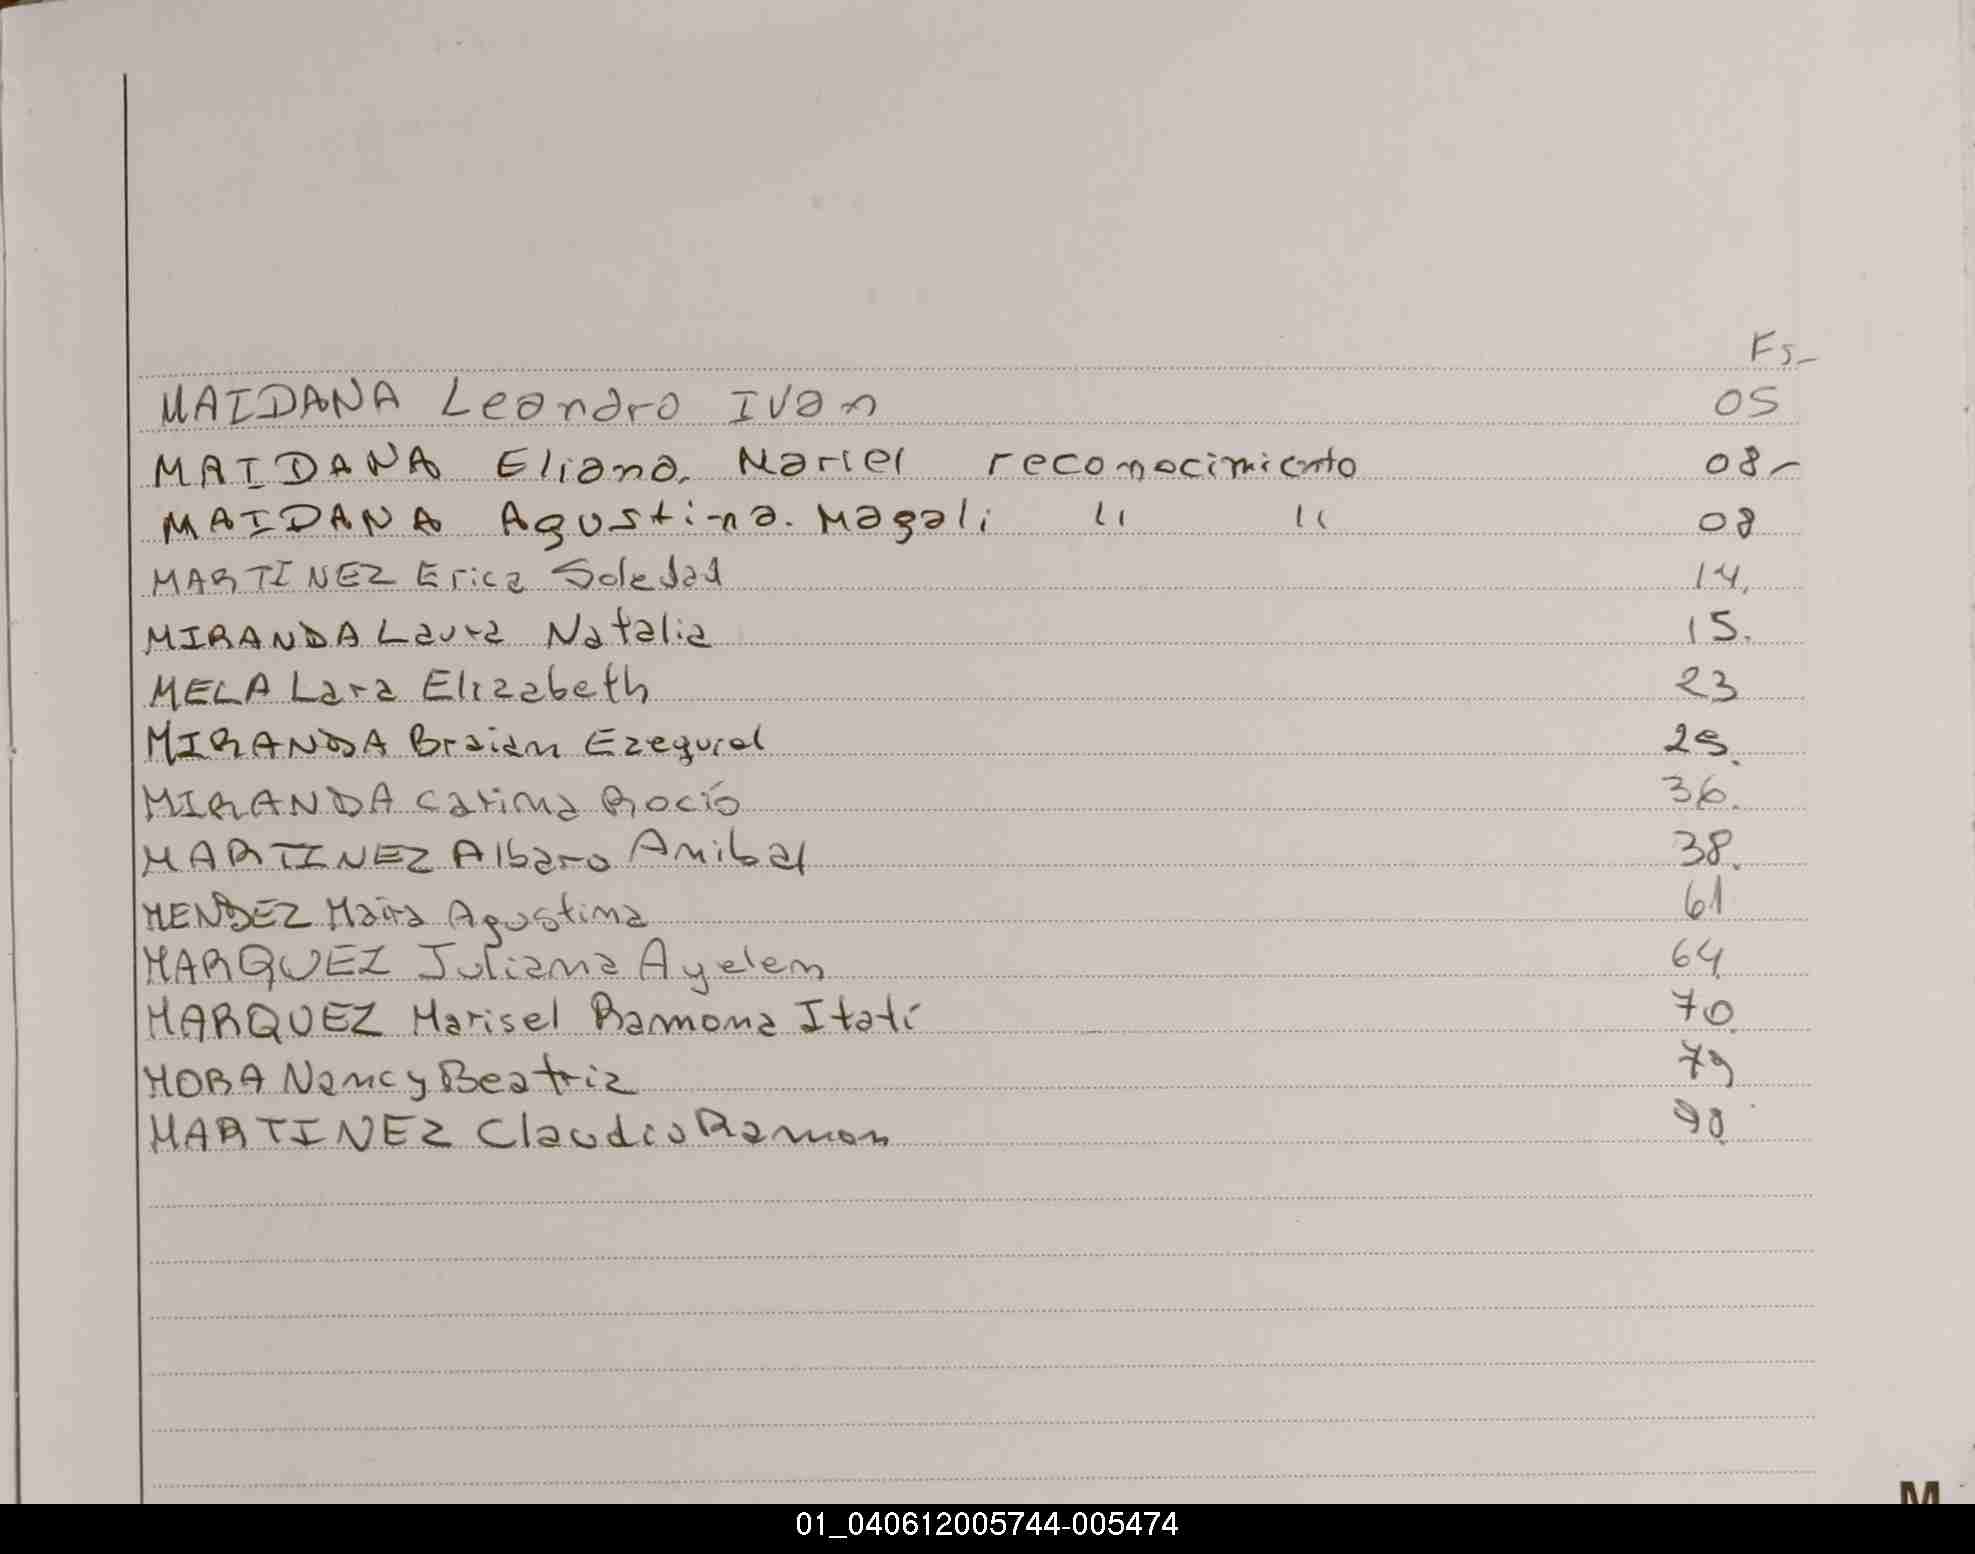 Fs-
MAIDANA Leandro Ivan 05
MAIDANA Eliana. Mariel reconocimiento 08-
MAIDANA Agustina. Magali " " 08
MARTINEZ Erica Soledad 14.
MIRANDA Laura Natalia 15.
MELA Lara Elizabeth 23
MIRANDA Braian Ezequiel
MIRANDA Carina Rocío 36.
MARTINEZ Albaro Anibal 38.
MENDEZ Maira Agustina 61
MARQUEZ Juliana Ayelen 64
MARQUEZ Marisel Ramona Itatí 70.
MORA Nancy Beatriz 79
MARTINEZ Claudio Ramon 90.
M
01_040612005744-005474